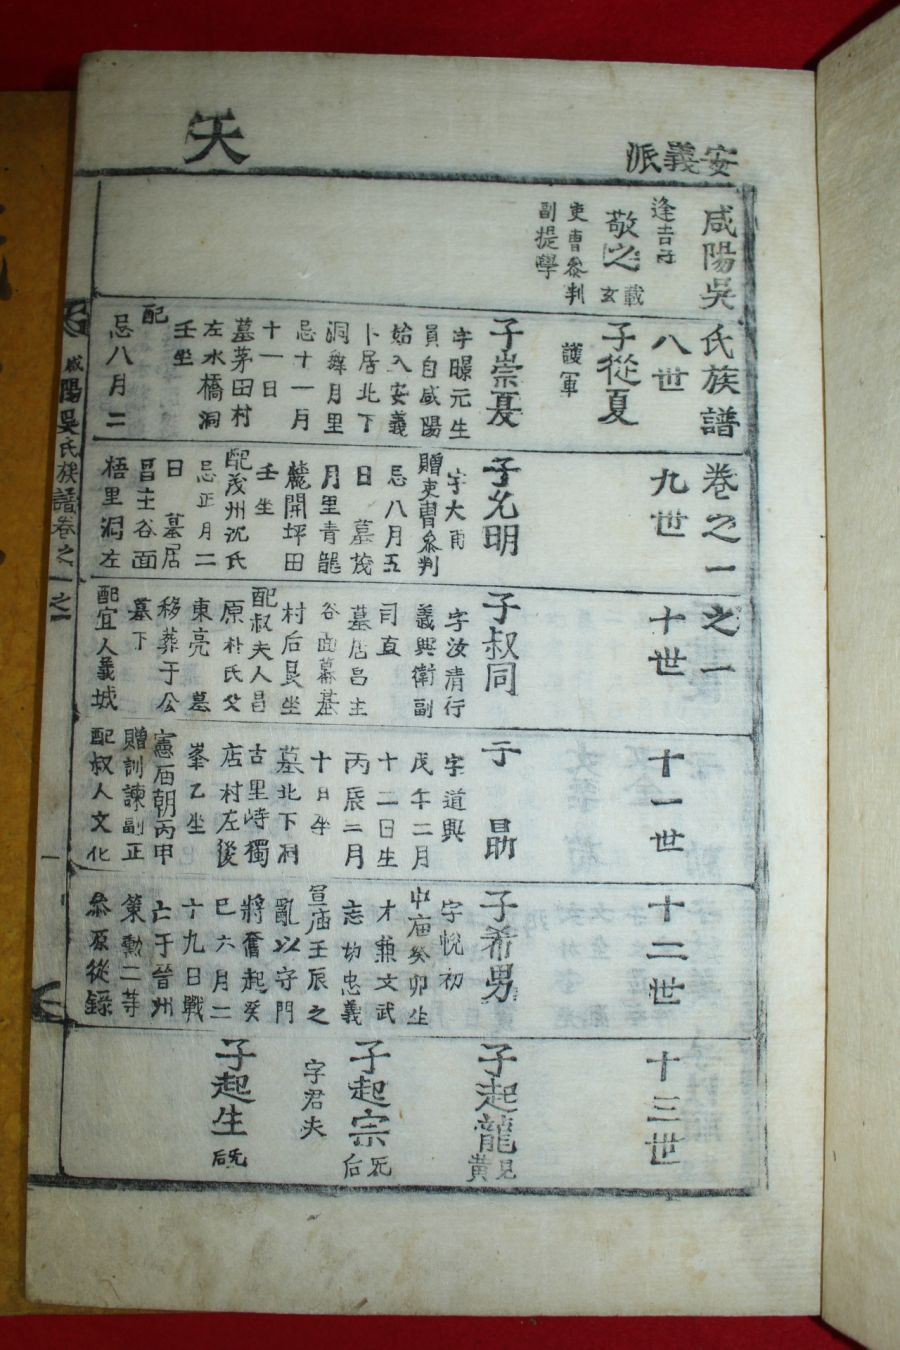 安義派
天
咸陽吳氏族譜卷之一之一
八世
九世
十世
十一世
十二世
十三世
逢吉子
敬之
載玄
吏曹參判
副提學
子從夏
護軍
子崇夏
字曝元生
員自咸陽
始入安義
卜居北下
洞舞月里
忌十一月
十一日
墓茅田村
左水橋洞
壬坐
配
忌八月二
子允明
字大甫
贈吏曹參判
忌八月五
日 墓茂
月里青龍
麓開坪田
壬坐
配茂州沈氏
忌正月二
日 墓居
昌主谷面
梧里洞左
子叔同
字汝清行
義興衛副
司直
墓居昌主
谷面幕基
村后艮坐
配叔夫人昌
原朴氏父
東亮 墓
移葬于公
墓下
配宜人義城
子 勗
字道興
戊午二月
十二日生
丙辰三月
十日卒
墓北下洞
古里峙獨
店村左後
峯乙坐
憲庙朝丙甲
贈訓諫副正
配叔人文化
子希男
字悅初
中庙癸卯生
才兼文武
忘切忠義
宣庙壬辰之
亂以守門
將奮起癸
巳六月二
十九日戰
亡于晉州
策勳二等
參原從錄
子起龍
見黃
子起宗
字君夫
无后
子起生
无后
咸陽吳氏族譜卷之一之一
一